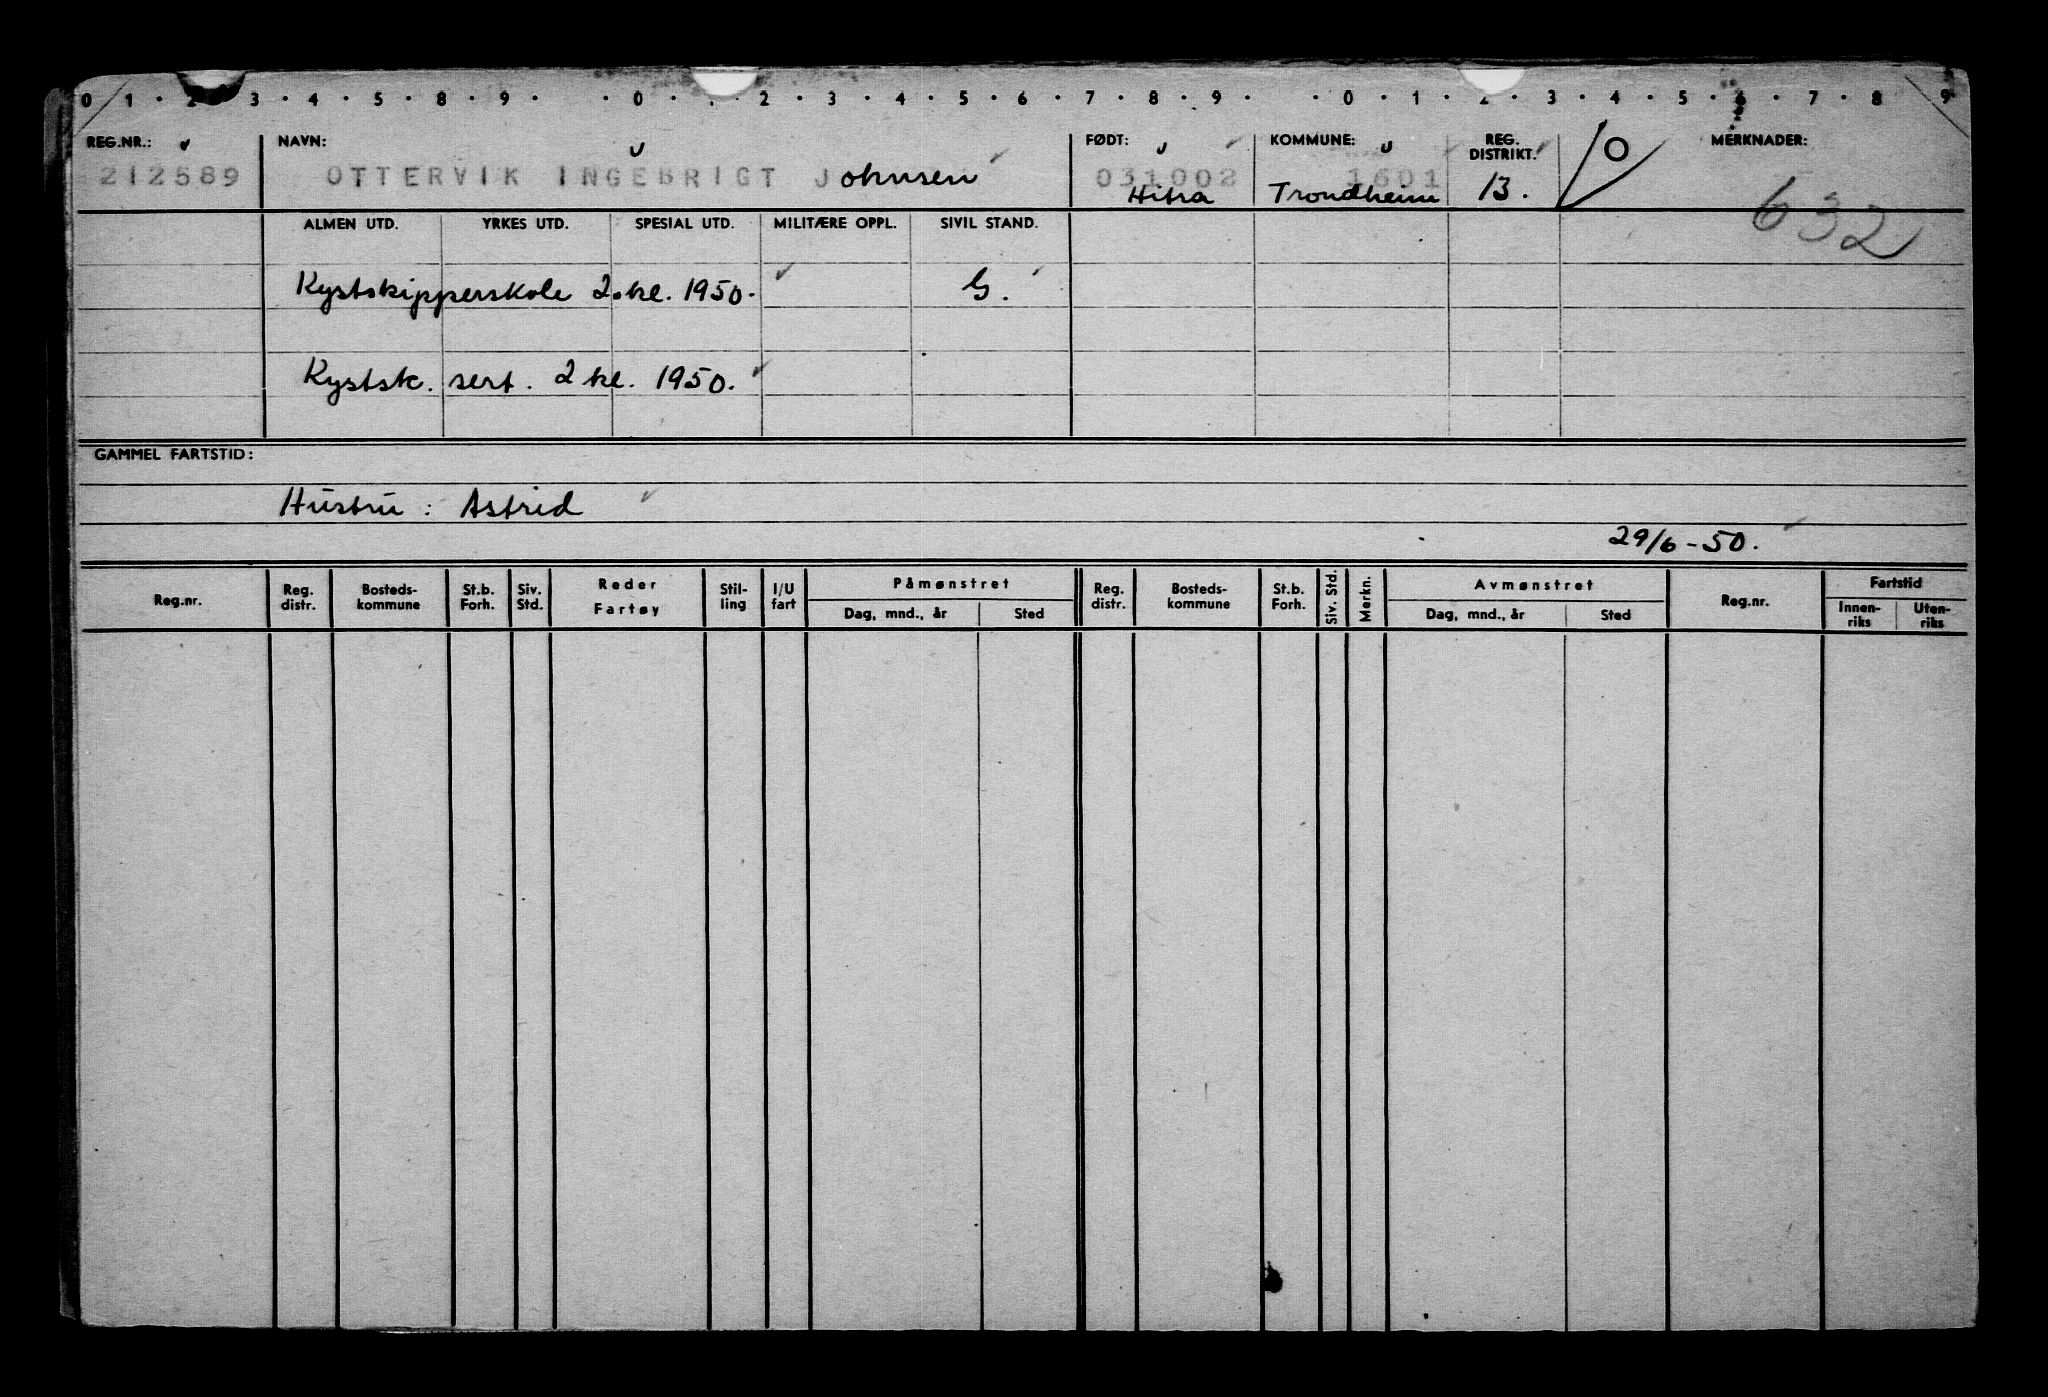 0 1 · 2 · 3 · 4 · 5 · 8 · 9 · · 0 · 1 · 2 · 3 · 4 · 5 · 6 · 7 · 8 · 9 · · 0 · 1 · 2 · 3 · 4 · 5 · 6 · 7 · 8 9
REG.NR.: NAVN: FØDT: KOMMUNE: REG. DISTRIKT. MERKNADER:
212589 OTTERVIK INGEBRIGT Johnsen 031002 1601
Hitra Trondheim 13. 632
ALMEN UTD. YRKES UTD. SPESIAL UTD. MILITÆRE OPPL. SIVIL STAND.
Kystskipperskole 2.kl. 1950. G.
Kystsk. sert. 2 kl. 1950.
GAMMEL FARTSTID:
Hustru : Astrid
29/6-50.
Reg.nr. Reg. distr. Bosteds-kommune St.b. Forh. Siv. Std. Reder Fartøy Stil-ling I/U fart Påmønstret Reg. distr. Bosteds-kommune St.b. Forh. Siv. Std. Merkn. Avmønstret Reg.nr. Fartstid
Dag, mnd., år Sted Dag, mnd., år Sted Innen-riks Uten-riks